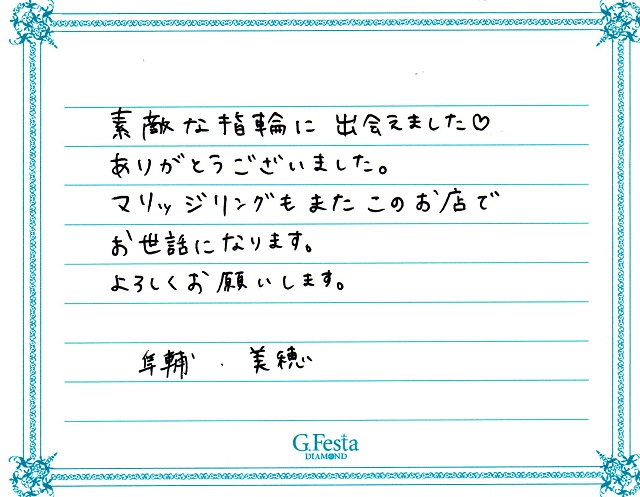 素敵な指輪に 出会えました♡
ありがとうございました。
マリッジリングもまたこのお店で
お世話になります。
よろしくお願いします。
隼輔 . 美穂
G.Festa
DIAMOND